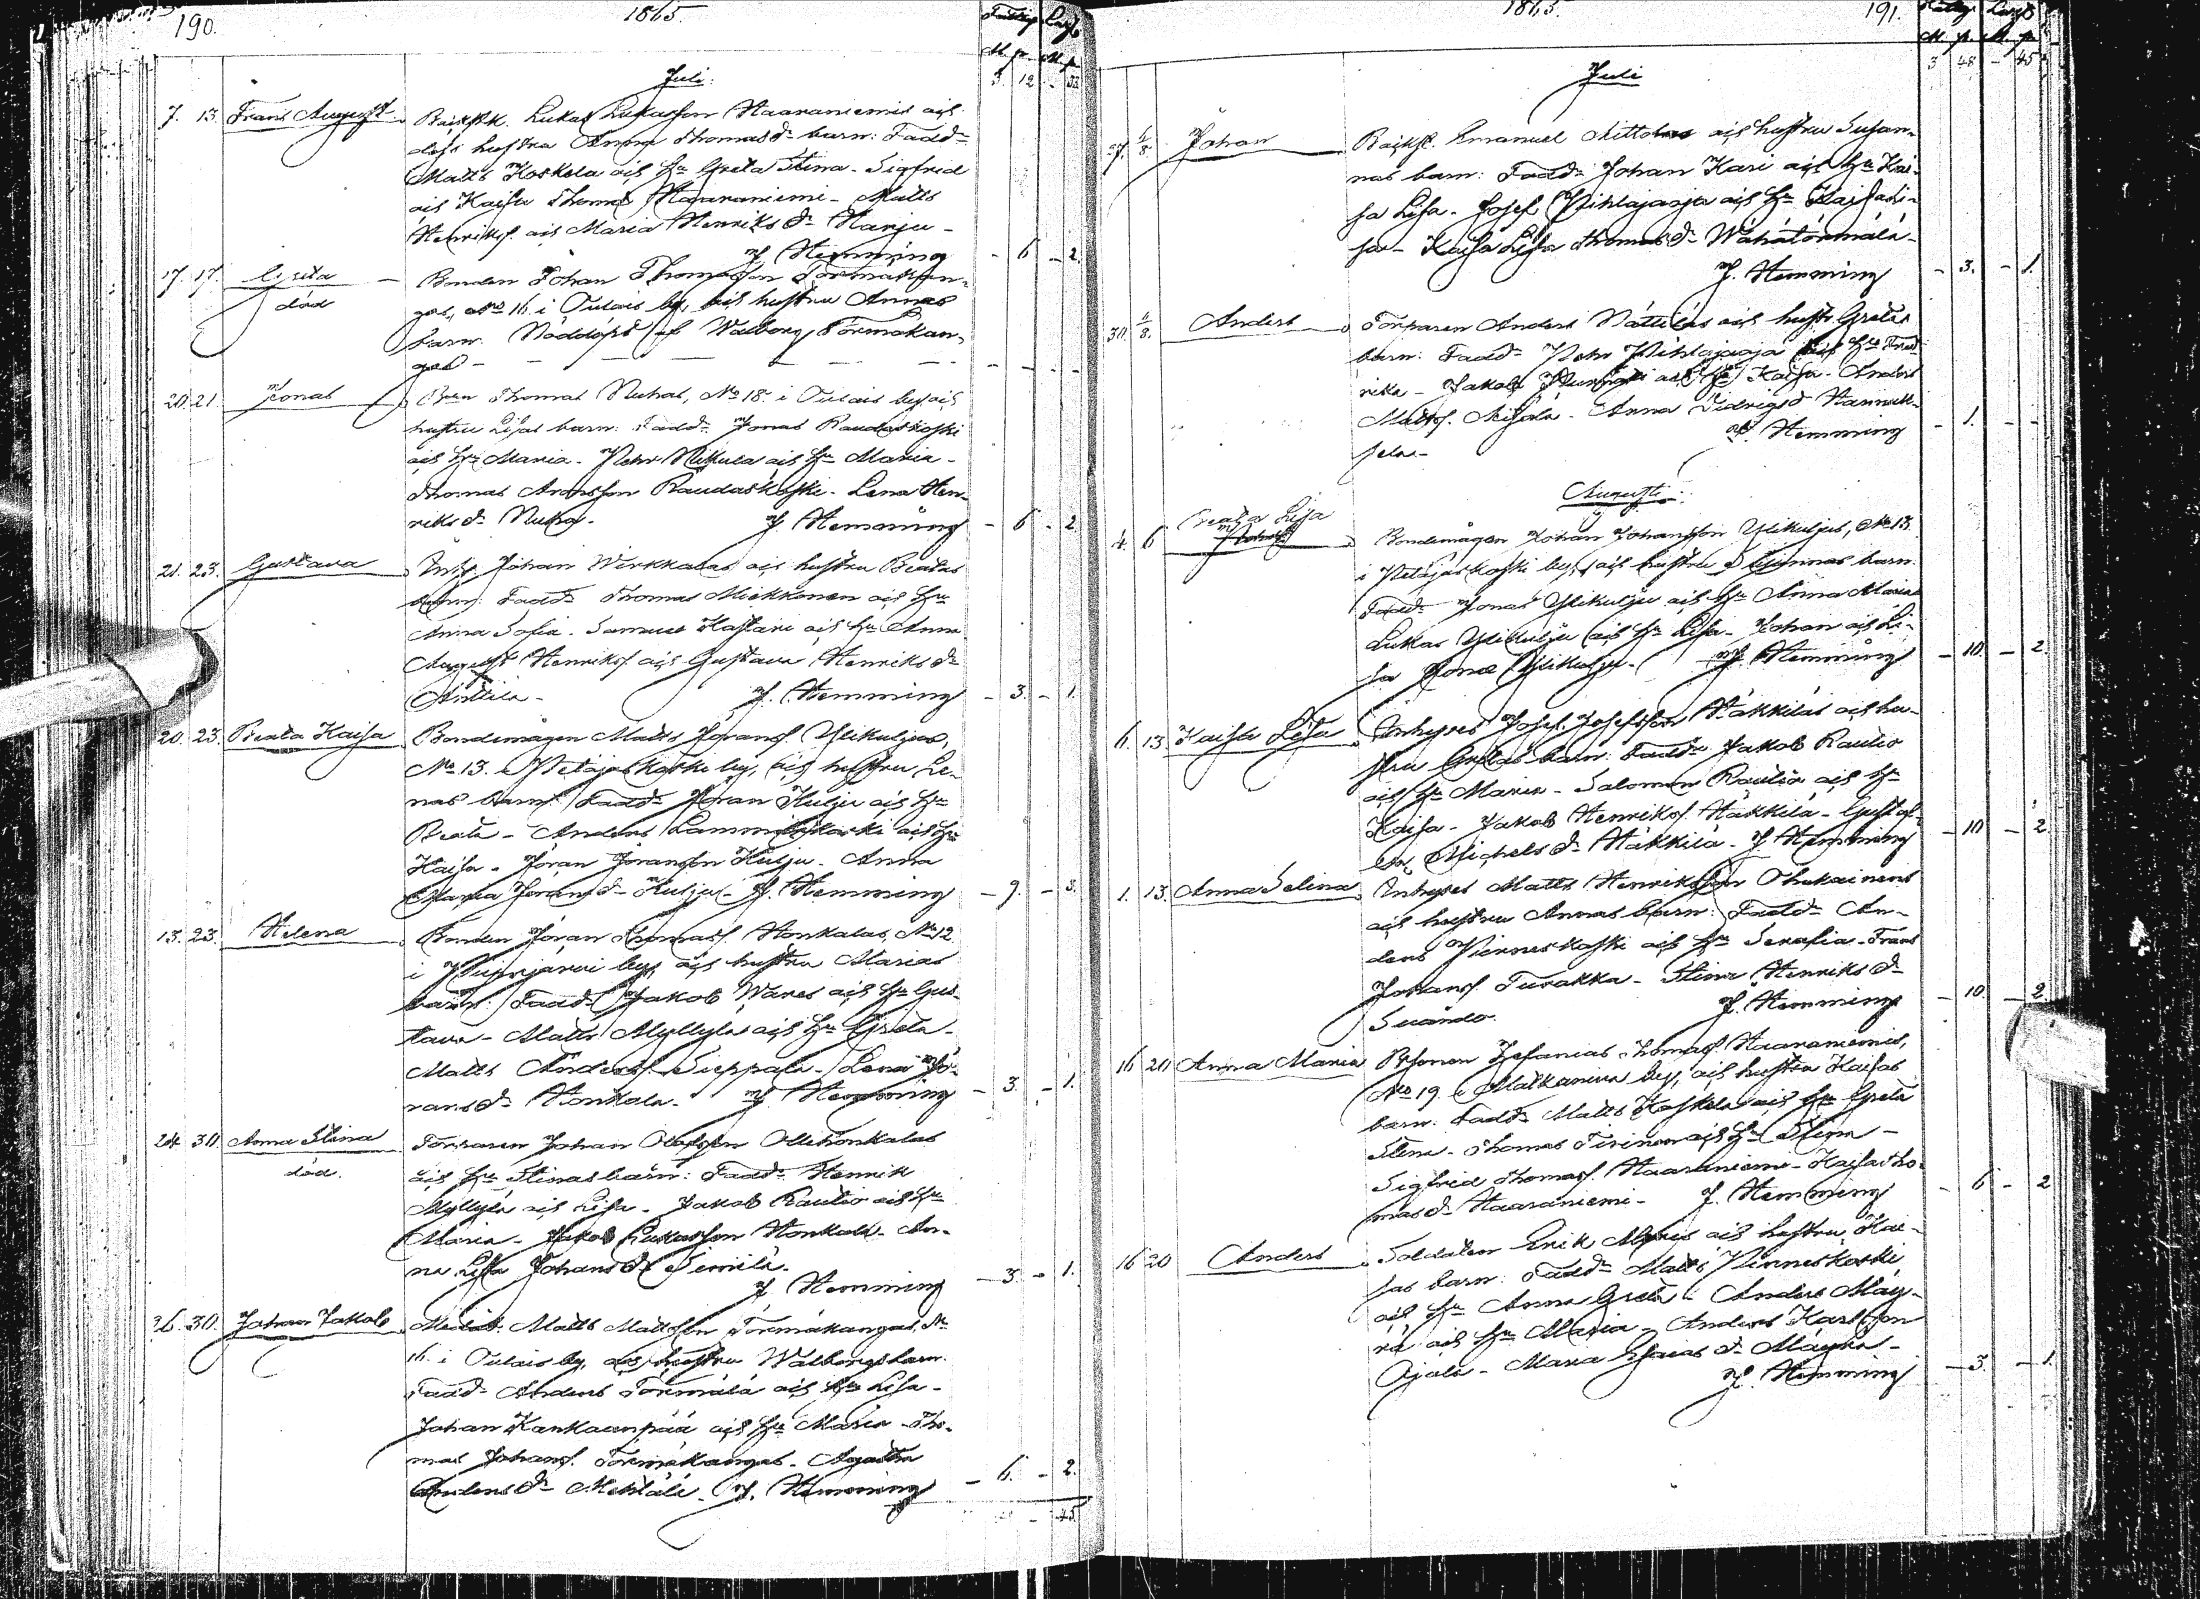 190.
1865.
Fattig Lazr
M. p. M. p.
Juli.
3 12 - 33
7. 13. Frans August
Backstk. Lukas Lukasson Haaraniemis o
dess hustru Anna Thomasdr barn: Fadd:
Matts Koskela och hu Greta Stina. Sigfrid
och Kaisa Thomæ Haaraniemi - Matts
Henrikss. och Maria Henriksdr Harju -
J. Hemming - 6 - 2.
17. 17. Greta
död
Bonden Johan Thomasson Törmäkan-
gas, No 16 i Oulais by, och hustru Annas
barn. Nöddöpt af Walborg Törmäkan-
gas - - - - -
20. 21. Jonas
Thomas Nuhas, No 18. i Oulais by, och
hustru Lisas barn: Fadd: Jonas Raudaskoski
och hu Maria. Petr Nikula och hu Maria -
Thomas Aronsson Raudaskoski. Lena Hen-
riksdr Nuha. J. Hemming - 6 - 2.
21. 23. Gustava
Inhs. Johan Wirkkalas och hustru Beatas
barn: Fadd: Thomas Miekkonen och hu
Anna Sofia. Samuel Kastari och hu Anna
August Henrikss. och Gustava Henriksdr
Anttila - J. Hemming - 3. - 1.
20. 23. Beata Kaisa
Bondemågen Matts Jöranss. Ylikuljus,
No 13. i Petäjäskoski by, och hustru Le-
nas barn. Fadd: Jöran Kulju och hu
Beata - Anders Lamminkoski och hu
Kaisa - Jöran Jöransson Kulju. Anna
Maria Jöransdr Kulju - J. Hemming - 9. - 3.
13. 23. Helena
Bonden Jöran Thomass. Honkalas, No 12.
i Piipsjärvi by, och hustru Marias
barn. Fadd: Jakob Wares och hu Gus-
tava - Matts Myllylä och hu Greta -
Matts Anderss. Sieppala - Lena Jö-
ransdr Honkala - J. Hemming - 3. - 1.
24. 30. Anna Stina
död.
Torparen Johan Olofsson Ollihonkalas
och hu Stinas barn: Fadd: Henrik
Myllylä och Lisa - Jakob Rautio och hu
Maria - Jakob Lukasson Honkala - An-
na Lisa Johansdr Similä.
J. Hemming - 3 - 1.
26. 30. Johan Jakob
Matts Mattsson Törmäkangas, No
16. i Oulais by, och hustru Walborgs barn.
Fadd: Anders Törmälä och hu Lisa -
Johan Kankaanpää och hu Maria - Tho-
mas Johanss. Törmäkangas - Agatha
Andersdr Mehtälä - J. Hemming - 6. - 2.
45.
1865.
191.
Fattig Lazr
M. p. M. p.
Juli
3 48 - 45
27. 6/8. Johan
Backst. Emanuel och hustru Susan-
nas barn: Fadd: Johan Kari och hu Kai-
sa Lisa. Josef Pihlajaoja och hu Kaisa Li-
sa - Kaisa Lisa Thomasdr Wähätörmälä -
J. Hemming - 3. - 1.
30. 6/8. Anders
Torparen Anders Nättiläs och hustr. Gretas
barn: Fadd: Petr Pihlajaoja och hu Fred-
rika - Jakob och hu Kaisa. Anders
Mattss. Anna Hannuk-
sela - J. Hemming - 1. - -
Augusti.
4. 6. Greta Lisa
Bondemågen Johan Johansson Ylikuljus, No 13.
i Petäjäskoski by, och hustru barn:
Fadd: Jonas Ylikulju och hu Anna Maria
Lukas Ylikulju och hu Lisa - Johan och Li-
sa Jonæ Ylikulju - J. Hemming - 10. - 2.
6. 13. Kaisa Lisa
Inhyses Josef Josefsson Häkkiläs och hu-
stru Gretas barn: Fadd: Jakob Rautio
och hu Maria - Salomon Rautio och hu
Kaisa - Jakob Henrikss. Häkkilä - Gustaf-
va Michelsdr Häkkilä - J. Hemming - 10 - 2.
1. 13. Anna Selina
Inhyses Matts Henriksson Ohukainens
och hustru Annas barn: Fadd: An-
ders Pirneskoski och hu Serafia - Frans
Johanss. Turakka - Stina Henriksdr
Suando. J. Hemming - 10 - 2.
16 20 Anna Maria
Bonden Zefanias Thomass. Haaraniemis,
No 19 i Matkaniva by, och hustru Kaisas
barn: Fadd: Matts Koskela och hu Greta
Stina - Thomas Tirinen och hu Stina -
Sigfrid Thomass. Haaraniemi - Kaisa Tho-
masdr Haaraniemi - J. Hemming - 6 - 2
16 20 Anders
Soldaten Erik och hustru Kai-
sas barn: Fadd: Matts Pirneskoski
och hu Anna Greta - Anders Mäy-
rä och hu Maria - Anders Karlsson
Ojala - Maria Esaiasdr Mäyrä -
J. Hemming - 3. - 1.